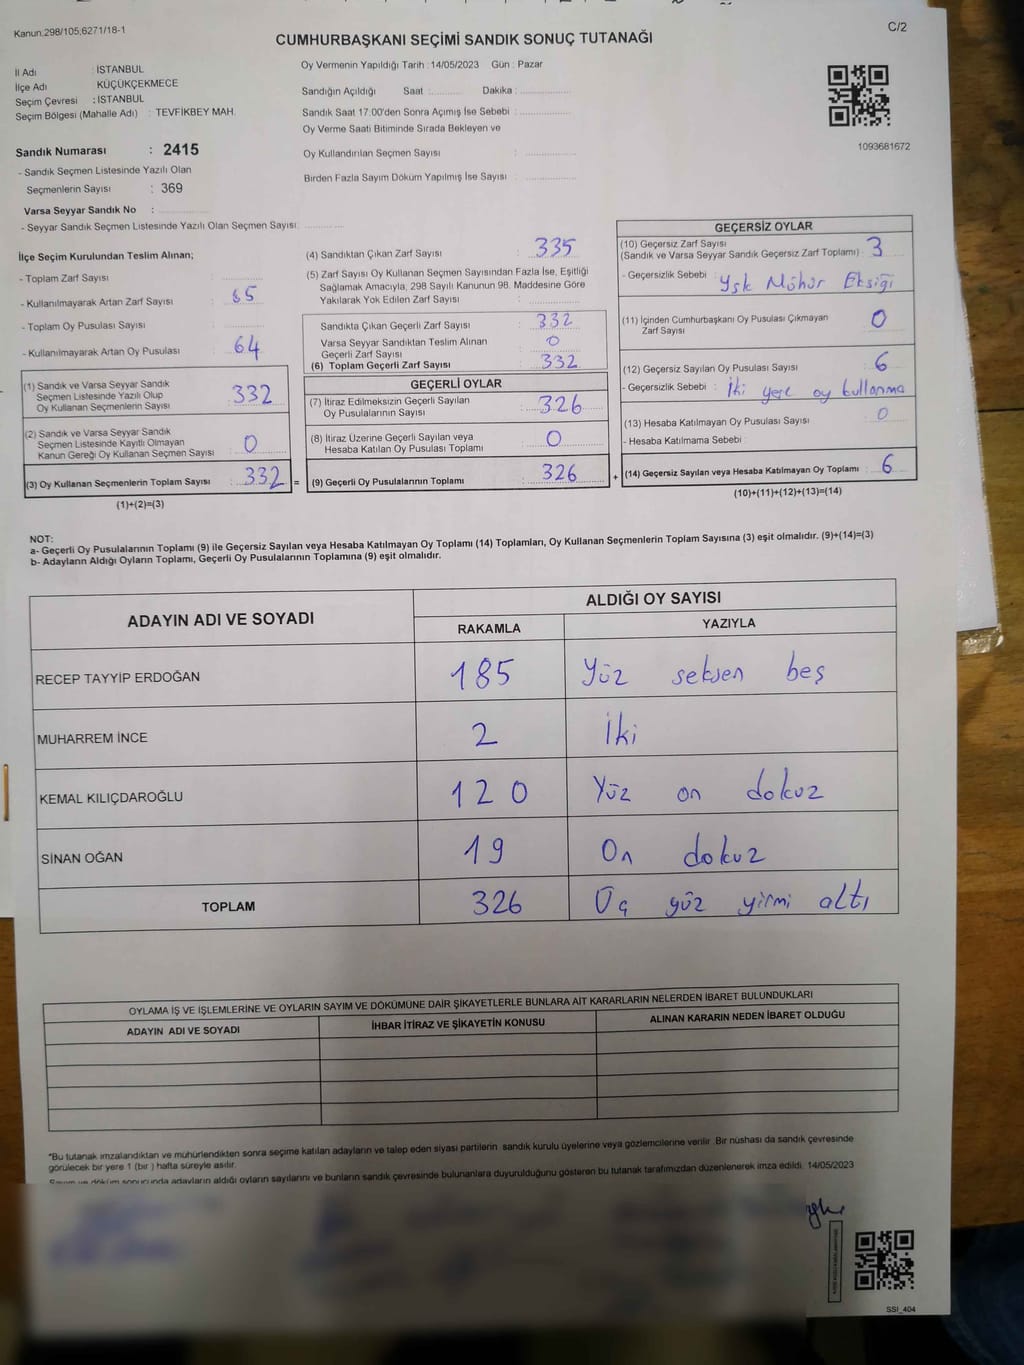 Kanun:298/105;6271/18-1
C/2
CUMHURBAŞKANI SEÇİMİ SANDIK SONUÇ TUTANAĞI
İl Adı : İSTANBUL
İlçe Adı : KÜÇÜKÇEKMECE
Seçim Çevresi : İSTANBUL
Seçim Bölgesi (Mahalle Adı) : TEVFİKBEY MAH.
Sandık Numarası : 2415
- Sandık Seçmen Listesinde Yazılı Olan
Seçmenlerin Sayısı : 369
Varsa Seyyar Sandık No :
- Seyyar Sandık Seçmen Listesinde Yazılı Olan Seçmen Sayısı:
Oy Vermenin Yapıldığı Tarih : 14/05/2023 Gün : Pazar
Sandığın Açıldığı Saat : Dakika :
Sandık Saat 17.00'den Sonra Açımış İse Sebebi :
Oy Verme Saati Bitiminde Sırada Bekleyen ve
Oy Kullandırılan Seçmen Sayısı :
Birden Fazla Sayım Döküm Yapılmış İse Sayısı :
1093681672
İlçe Seçim Kurulundan Teslim Alınan;
- Toplam Zarf Sayısı :
- Kullanılmayarak Artan Zarf Sayısı : 65
- Toplam Oy Pusulası Sayısı :
- Kullanılmayarak Artan Oy Pusulası : 64
(1) Sandık ve Varsa Seyyar Sandık
Seçmen Listesinde Yazılı Olup
Oy Kullanan Seçmenlerin Sayısı : 332
(2) Sandık ve Varsa Seyyar Sandık
Seçmen Listesinde Kayıtlı Olmayan
Kanun Gereği Oy Kullanan Seçmen Sayısı : 0
(3) Oy Kullanan Seçmenlerin Toplam Sayısı : 332 =
(1)+(2)=(3)
(4) Sandıktan Çıkan Zarf Sayısı : 335
(5) Zarf Sayısı Oy Kullanan Seçmen Sayısından Fazla İse, Eşitliği
Sağlamak Amacıyla, 298 Sayılı Kanunun 98. Maddesine Göre
Yakılarak Yok Edilen Zarf Sayısı :
Sandıkta Çıkan Geçerli Zarf Sayısı : 332
Varsa Seyyar Sandıktan Teslim Alınan
Geçerli Zarf Sayısı : 0
(6) Toplam Geçerli Zarf Sayısı : 332
GEÇERLİ OYLAR
(7) İtiraz Edilmeksizin Geçerli Sayılan
Oy Pusulalarının Sayısı : 326
(8) İtiraz Üzerine Geçerli Sayılan veya
Hesaba Katılan Oy Pusulası Toplamı : 0
(9) Geçerli Oy Pusulalarının Toplamı : 326 +
GEÇERSİZ OYLAR
(10) Geçersiz Zarf Sayısı
(Sandık ve Varsa Seyyar Sandık Geçersiz Zarf Toplamı) : 3
- Geçersizlik Sebebi : Ysk Mühür Eksiği
(11) İçinden Cumhurbaşkanı Oy Pusulası Çıkmayan
Zarf Sayısı : 0
(12) Geçersiz Sayılan Oy Pusulası Sayısı : 6
- Geçersizlik Sebebi : İki yere oy kullanma
(13) Hesaba Katılmayan Oy Pusulası Sayısı : 0
- Hesaba Katılmama Sebebi
(14) Geçersiz Sayılan veya Hesaba Katılmayan Oy Toplamı : 6
(10)+(11)+(12)+(13)=(14)
NOT:
a- Geçerli Oy Pusulalarının Toplamı (9) ile Geçersiz Sayılan veya Hesaba Katılmayan Oy Toplamı (14) Toplamları, Oy Kullanan Seçmenlerin Toplam Sayısına (3) eşit olmalıdır. (9)+(14)=(3)
b- Adayların Aldığı Oyların Toplamı, Geçerli Oy Pusulalarının Toplamına (9) eşit olmalıdır.
ADAYIN ADI VE SOYADI
ALDIĞI OY SAYISI
RAKAMLA YAZIYLA
RECEP TAYYİP ERDOĞAN 185 Yüz seksen beş
MUHARREM İNCE 2 İki
KEMAL KILIÇDAROĞLU 120 Yüz on dokuz
SİNAN OĞAN 19 On dokuz
TOPLAM 326 Üç yüz yirmi altı
OYLAMA İŞ VE İŞLEMLERİNE VE OYLARIN SAYIM VE DÖKÜMÜNE DAİR ŞİKAYETLERLE BUNLARA AİT KARARLARIN NELERDEN İBARET BULUNDUKLARI
ADAYIN ADI VE SOYADI İHBAR İTİRAZ VE ŞİKAYETİN KONUSU ALINAN KARARIN NEDEN İBARET OLDUĞU
*Bu tutanak imzalandıktan ve mühürlendikten sonra seçime katılan adayların ve talep eden siyasi partilerin sandık kurulu üyelerine veya gözlemcilerine verilir. Bir nüshası da sandık çevresinde
görülecek bir yere 1 (bir ) hafta süreyle asılır.
Sayım ve döküm sonucunda adayların aldığı oyların sayılarını ve bunların sandık çevresinde bulunanlara duyurulduğunu gösteren bu tutanak tarafımızdan düzenlenerek imza edildi. 14/05/2023
SSI_404